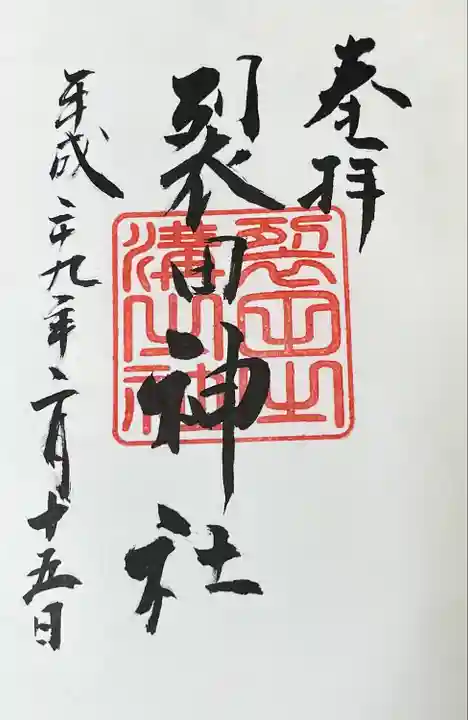 奉拝
裂田神社
裂田之
溝之神
平成二十九年二月十五日